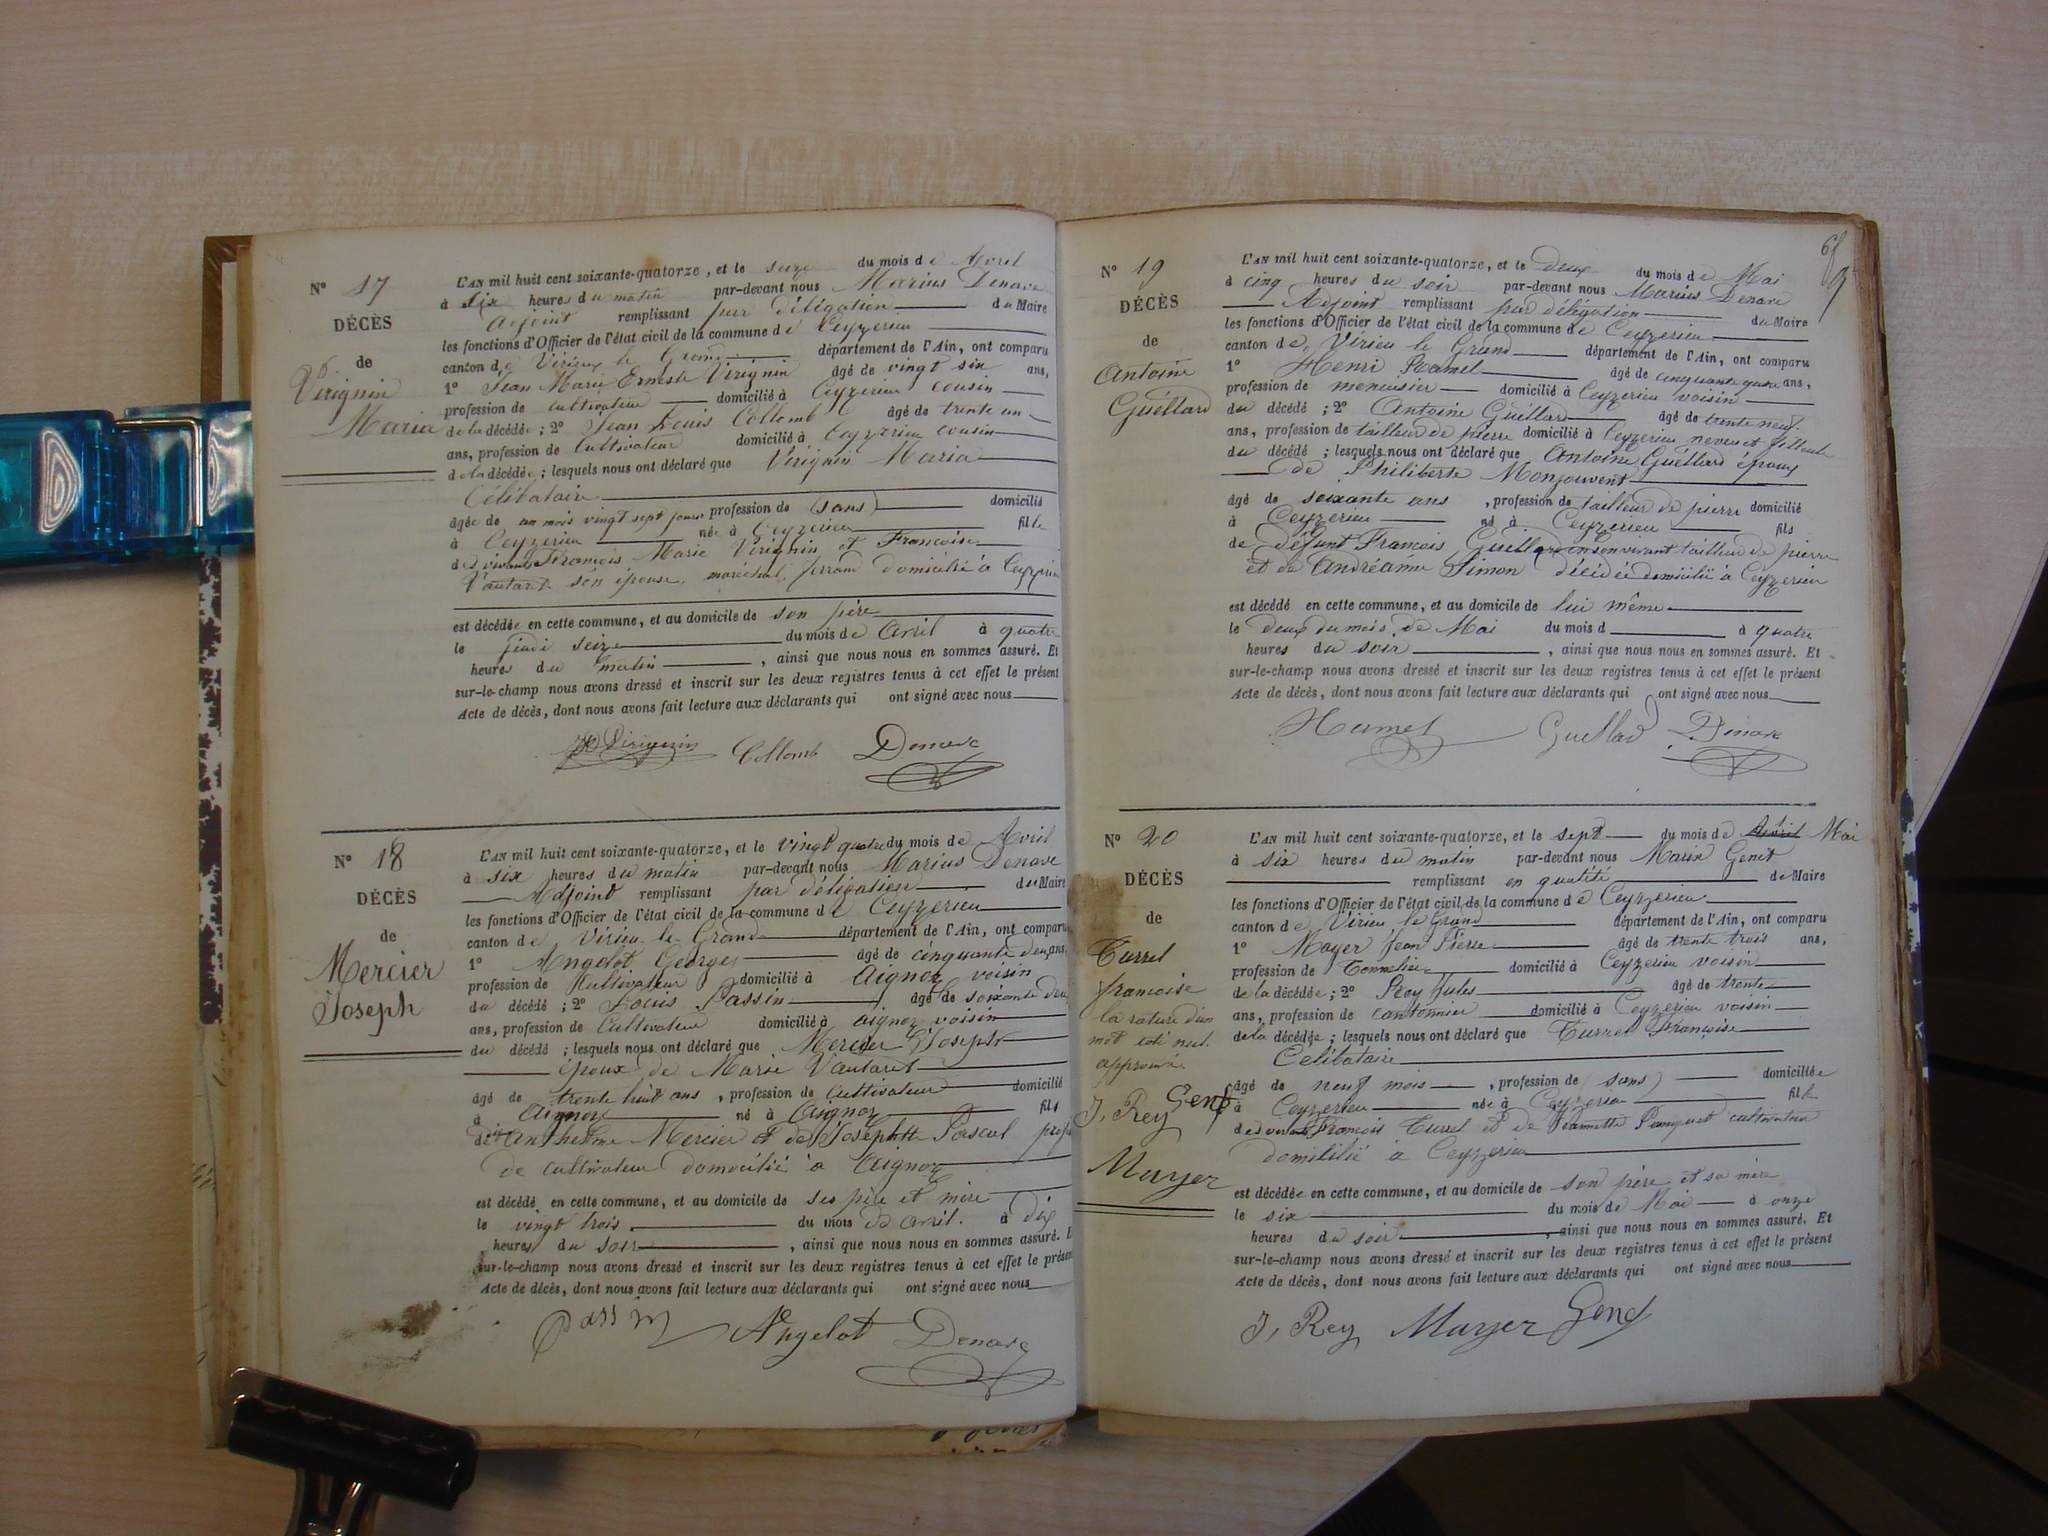 N° 17
DÉCÈS
de
Virignin
Maria
L'AN mil huit cent soixante-quatorze, et le seize du mois de Avril
à six heures du matin par-devant nous Marius Denave
Adjoint remplissant par délégation du Maire
les fonctions d'Officier de l'état civil de la commune de Ceyzerieu
canton de Virieu le Grand département de l'Ain, ont comparu
1° Jean Marie Ernest Virignin âgé de vingt six ans,
profession de cultivateur domicilié à Ceyzerieu cousin
de la décédée ; 2° Jean Louis Collomb âgé de trente un
ans, profession de Cultivateur domicilié à Ceyzerieu cousin
de la décédée ; lesquels nous ont déclaré que Virignin Maria
Célibataire
âgée de un mois vingt sept jours profession de (sans) domicilié
à Ceyzerieu née à Ceyzerieu fille
des vivants François Marie Virignin et Françoise
Vautaret son épouse, maréchal ferrand domicilié à Ceyzerieu
est décédée en cette commune, et au domicile de son père
le jeudi seize du mois de Avril à quatre
heures du matin, ainsi que nous nous en sommes assuré. Et
sur-le-champ nous avons dressé et inscrit sur les deux registres tenus à cet effet le présent
Acte de décès, dont nous avons fait lecture aux déclarants qui ont signé avec nous
Virignin Collomb Denave
N° 18
DÉCÈS
de
Mercier
Joseph
L'AN mil huit cent soixante-quatorze, et le vingt quatre du mois de Avril
à six heures du matin par-devant nous Marius Denave
Adjoint remplissant par délégation du Maire
les fonctions d'Officier de l'état civil de la commune de Ceyzerieu
canton de Virieu le Grand département de l'Ain, ont comparu
1° Angelot Georges âgé de cinquante deux ans,
profession de Cultivateur domicilié à Aignoz voisin
du décédé ; 2° Louis Passin âgé de soixante deux
ans, profession de Cultivateur domicilié à aignoz voisin
du décédé ; lesquels nous ont déclaré que Mercier Joseph
époux de Marie Vautaret
âgé de trente huit ans, profession de Cultivateur domicilié
à Aignoz né à Aignoz fils
de Anthelme Mercier et de Josephte Pascal
de cultivateur domicilié à Aignoz
est décédé en cette commune, et au domicile de ses père et mère
le vingt trois du mois de avril. à dix
heures du soir, ainsi que nous nous en sommes assuré. E
sur-le-champ nous avons dressé et inscrit sur les deux registres tenus à cet effet le présen
Acte de décès, dont nous avons fait lecture aux déclarants qui ont signé avec nous
Passin Angelot Denave
N° 19
DÉCÈS
de
Antoine
Guéllard
L'AN mil huit cent soixante-quatorze, et le Deux du mois de Mai
à cinq heures du soir par-devant nous Marius Denave
Adjoint remplissant par délégation du Maire
les fonctions d'Officier de l'état civil de la commune de Ceyzerieu
canton de Virieu le Grand département de l'Ain, ont comparu
1° Henri Hamel âgé de cinquante ans,
profession de menuisier domicilié à Ceyzerieu voisin
du décédé ; 2° Antoine Guéllard âgé de trente neuf
ans, profession de tailleur de pierre domicilié à Ceyzerieu neveu et filleule
du décédé ; lesquels nous ont déclaré que Antoine Guéllard époux
de Philiberte Monjouvent
âgé de soixante ans, profession de tailleur de pierre domicilié
à Ceyzerieu né à Ceyzerieu fils
de défunt François Guéllard en son vivant tailleur de pierre
et de Andréanne Simon décédée domicilié à Ceyzerieu
est décédé en cette commune, et au domicile de lui même
le deux du mois de Mai du mois d à quatre
heures du soir, ainsi que nous nous en sommes assuré. Et
sur-le-champ nous avons dressé et inscrit sur les deux registres tenus à cet effet le présent
Acte de décès, dont nous avons fait lecture aux déclarants qui ont signé avec nous
Hamel Guellard Denave
N° 20
DÉCÈS
de
Turrel
françoise
la rature d'un
mot nul
approuvé.
J, Rey Genet
Mayer
L'AN mil huit cent soixante-quatorze, et le sept du mois de Avril Mai
à six heures du matin par-devant nous Marin Genet
remplissant en qualité de Maire
les fonctions d'Officier de l'état civil de la commune de Ceyzerieu
canton de Virieu le Grand département de l'Ain, ont comparu
1° Mayer Jean Pierre âgé de trente trois ans,
profession de Tonnelier domicilié à Ceyzerieu voisin
de la décédée ; 2° Rey Jules âgé de trente
ans, profession de cantonnier domicilié à Ceyzerieu voisin
de la décédée ; lesquels nous ont déclaré que Turrel Françoise
Célibataire
âgé de neuf mois, profession de (sans) domiciliée
à Ceyzerieu née à Ceyzerieu fille
des vivants François Turrel et de Jeannette cultivateur
domicilié à Ceyzerieu
est décédée en cette commune, et au domicile de son père et sa mère
le six du mois de Mai à onze
heures du soir, ainsi que nous nous en sommes assuré. Et
sur-le-champ nous avons dressé et inscrit sur les deux registres tenus à cet effet le présent
Acte de décès, dont nous avons fait lecture aux déclarants qui ont signé avec nous
J, Rey Mayer Genet